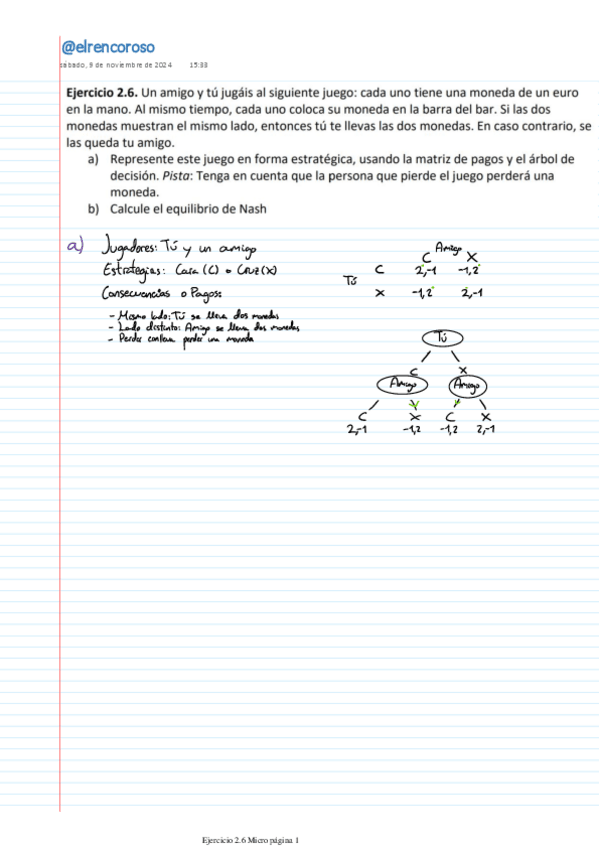 @elrencoroso
sábado, 9 de noviembre de 2024 15:33
Ejercicio 2.6. Un amigo y tú jugáis al siguiente juego: cada uno tiene una moneda de un euro
en la mano. Al mismo tiempo, cada uno coloca su moneda en la barra del bar. Si las dos
monedas muestran el mismo lado, entonces tú te llevas las dos monedas. En caso contrario, se
las queda tu amigo.
a) Represente este juego en forma estratégica, usando la matriz de pagos y el árbol de
decisión. Pista: Tenga en cuenta que la persona que pierde el juego perderá una
moneda.
b) Calcule el equilibrio de Nash
a) Jugadores: Tú y un amigo
Estrategias: Cara (C) o Cruz (X)
Consecuencias o Pagos:
- Mismo lado: Tú se lleva dos monedas
- Lado distinto: Amigo se lleva dos monedas
- Perder conlleva perder una moneda
Amigo
C X
Tú C 2,-1 -1,2
X -1,2 2,-1
Tú
C X
Amigo Amigo
C X C X
2,-1 -1,2 -1,2 2,-1
Ejercicio 2.6 Micro página 1